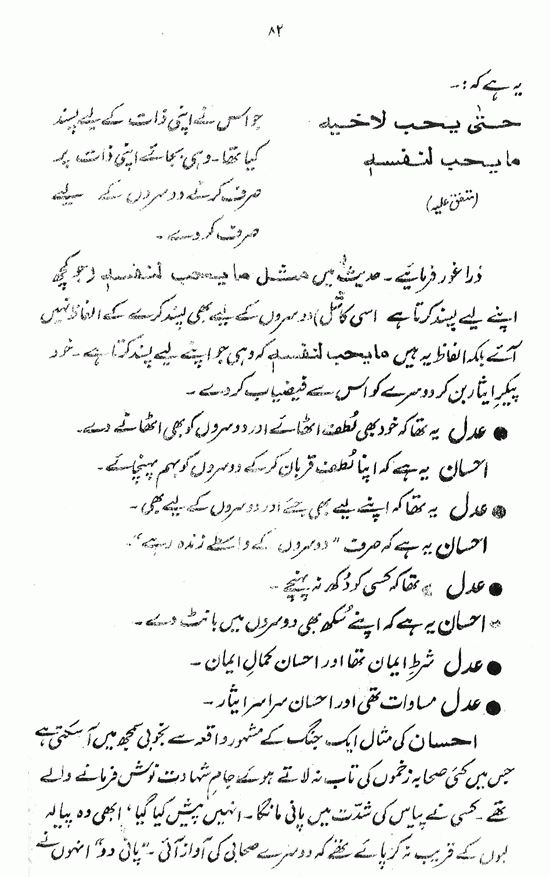 ۸۲
یہ ہے کہ:۔
حتیٰ یحب لاخیہ
ما یحب لنفسہ
(متفق علیہ)
جو اس نے اپنی ذات کے لیے پسند
کیا تھا۔ وہی بجائے اپنی ذات پر
صرف کرنے دوسروں کے لیے
صرف کر دے۔
ذرا غور فرمائیے۔ حدیث میں مثل ما یحب لنفسہ (جو کچھ
اپنے لیے پسند کرتا ہے اسی کا مثل) دوسروں کے لیے بھی پسند کرے کے الفاظ نہیں
آئے بلکہ الفاظ یہ ہیں ما یحب لنفسہ کہ وہی جو اپنے لیے پسند کرتا ہے۔ خود
پیکرِ ایثار بن کر دوسرے کو اس سے فیضیاب کر دے۔
● عدل یہ تھا کہ خود بھی لُطف اٹھائے اور دوسروں کو بھی اٹھانے دے۔
احسان یہ ہے کہ اپنا لُطف قربان کر کے دوسروں کو بہم پہنچائے۔
● عدل یہ تھا کہ اپنے لیے بھی جئے اور دوسروں کے لیے بھی۔
احسان یہ ہے کہ صرف "دوسروں کے واسطے زندہ رہے"۔
● عدل یہ تھا کہ کسی کو دُکھ نہ پہنچے۔
احسان یہ ہے کہ اپنے سُکھ بھی دوسروں میں بانٹ دے۔
● عدل شرطِ ایمان تھا اور احسان کمالِ ایمان۔
● عدل مساوات تھی اور احسان سراسر ایثار۔
احسان کی مثال ایک جنگ کے مشہور واقعہ سے بخوبی سمجھ میں آ سکتی ہے
جس میں کئی صحابہ زخموں کی تاب نہ لاتے ہوئے جامِ شہادت نوش فرمانے والے
تھے۔ کسی نے پیاس کی شدّت میں پانی مانگا۔ انہیں پیش کیا گیا، ابھی وہ پیالہ
لبوں کے قریب نہ کر پائے تھے کہ دوسرے صحابی کی آواز آئی۔ "پانی دو" انہوں نے